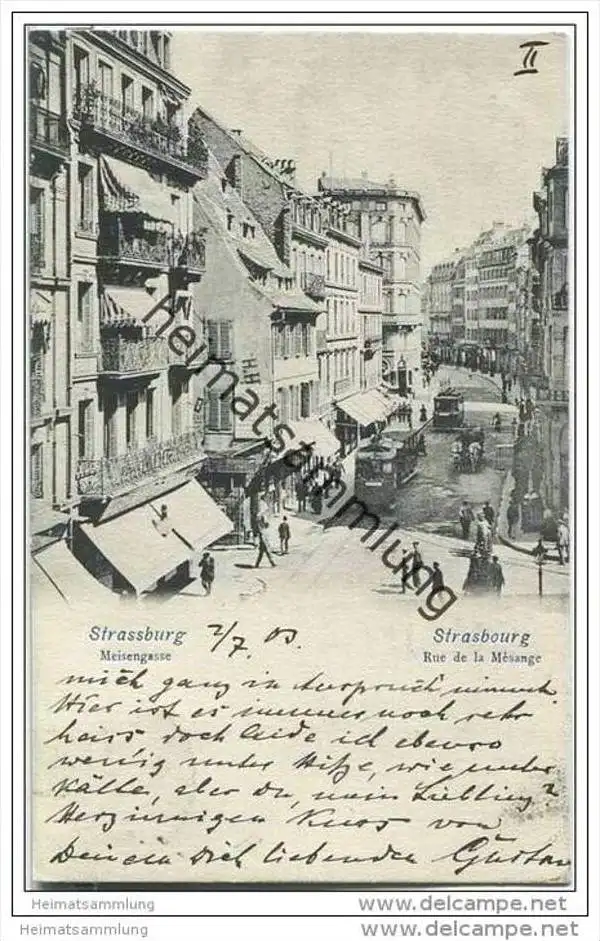 II
heimatsammlung.de
Strassburg 2/7. 03.
Meisengasse
Strasbourg
Rue de la Mésange
mich ganz in Anspruch nimmt.
Hier ist es immer noch sehr
heiss doch leide ich ebenso
wenig unter Hitze, wie unter
Kälte, aber Du, mein Liebling?
Herzinnigen Kuss von
Deinem Dich liebenden Gustav
Heimatsammlung www.ansichtskarten-center.de
Heimatsammlung www.heimatsammlung.de